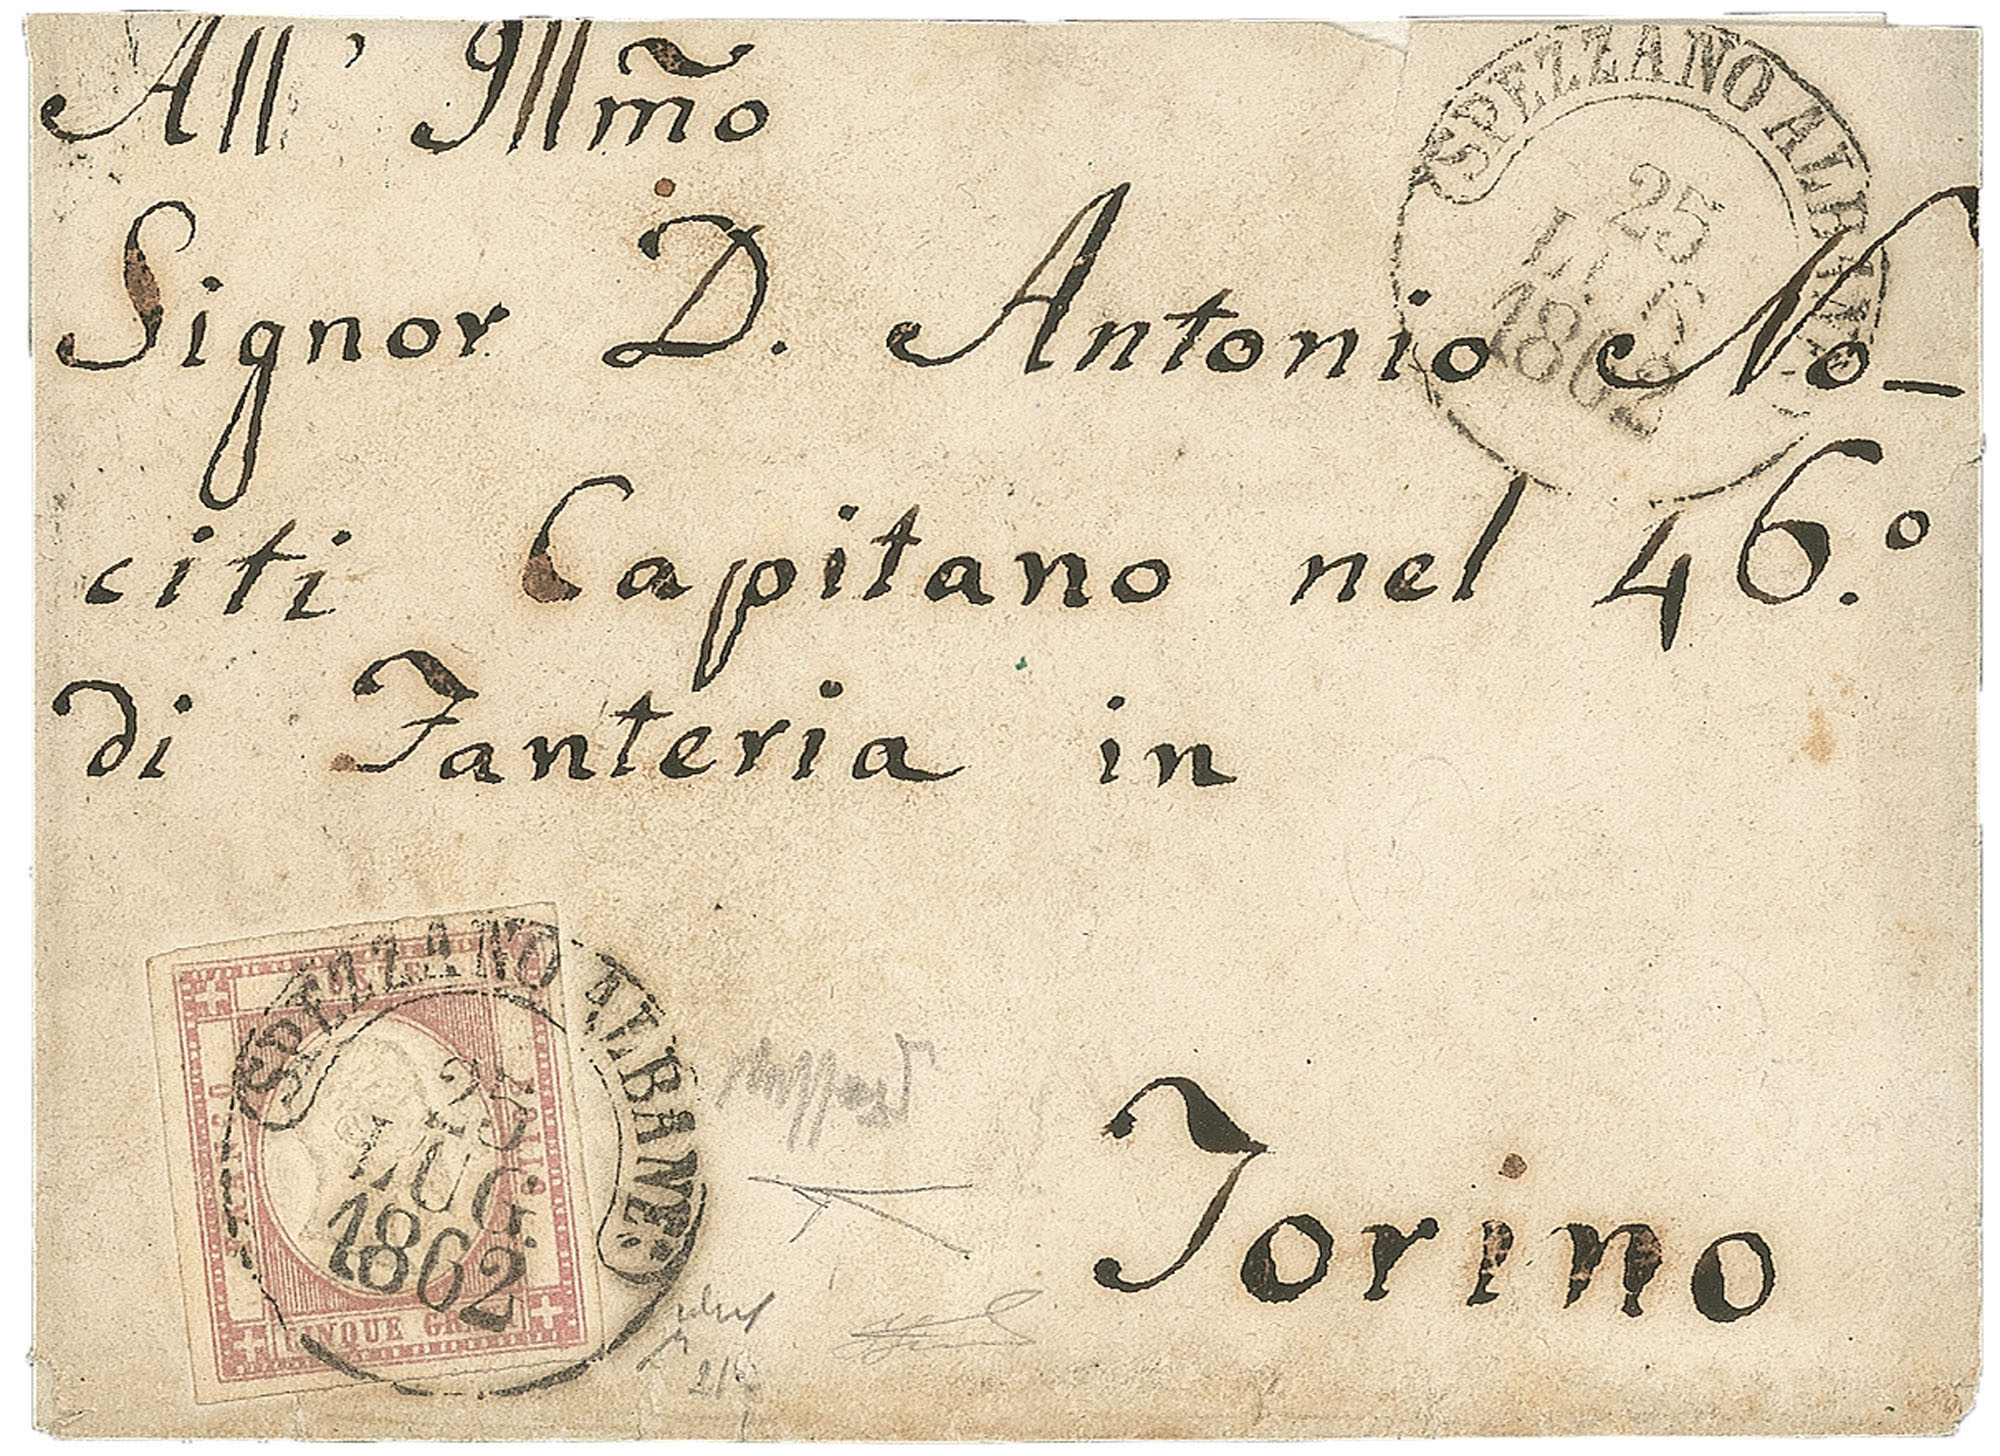 All' Illm̃o
Signor D. Antonio No-
citi Capitano nel 46.º
di Fanteria in
Torino
SPEZZANO ALBANE
25
LUG
1862
SPEZZANO ALBANESE
25
LUG.
1862
CINQUE GRANA